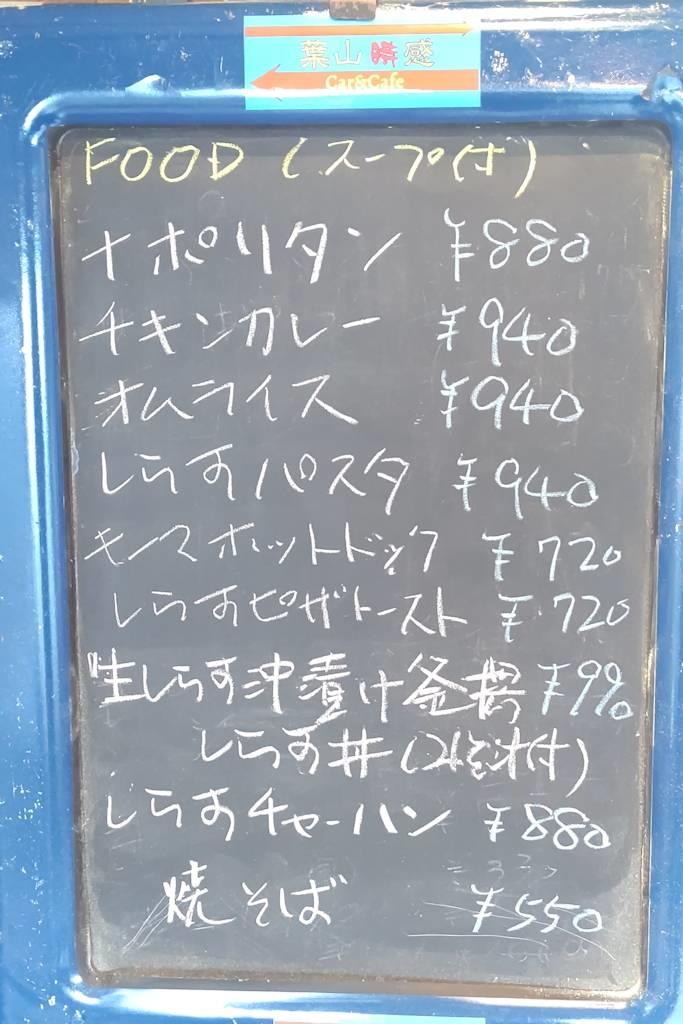 葉山時感
Car&Cafe
FOOD (スープ付)
ナポリタン ¥880
チキンカレー ¥940
オムライス ¥940
しらすパスタ ¥940
チーズホットドック ¥720
しらすピザトースト ¥720
生しらす沖漬け釜揚 ¥990
しらす丼(みそ汁付)
しらすチャーハン ¥880
焼そば ¥550